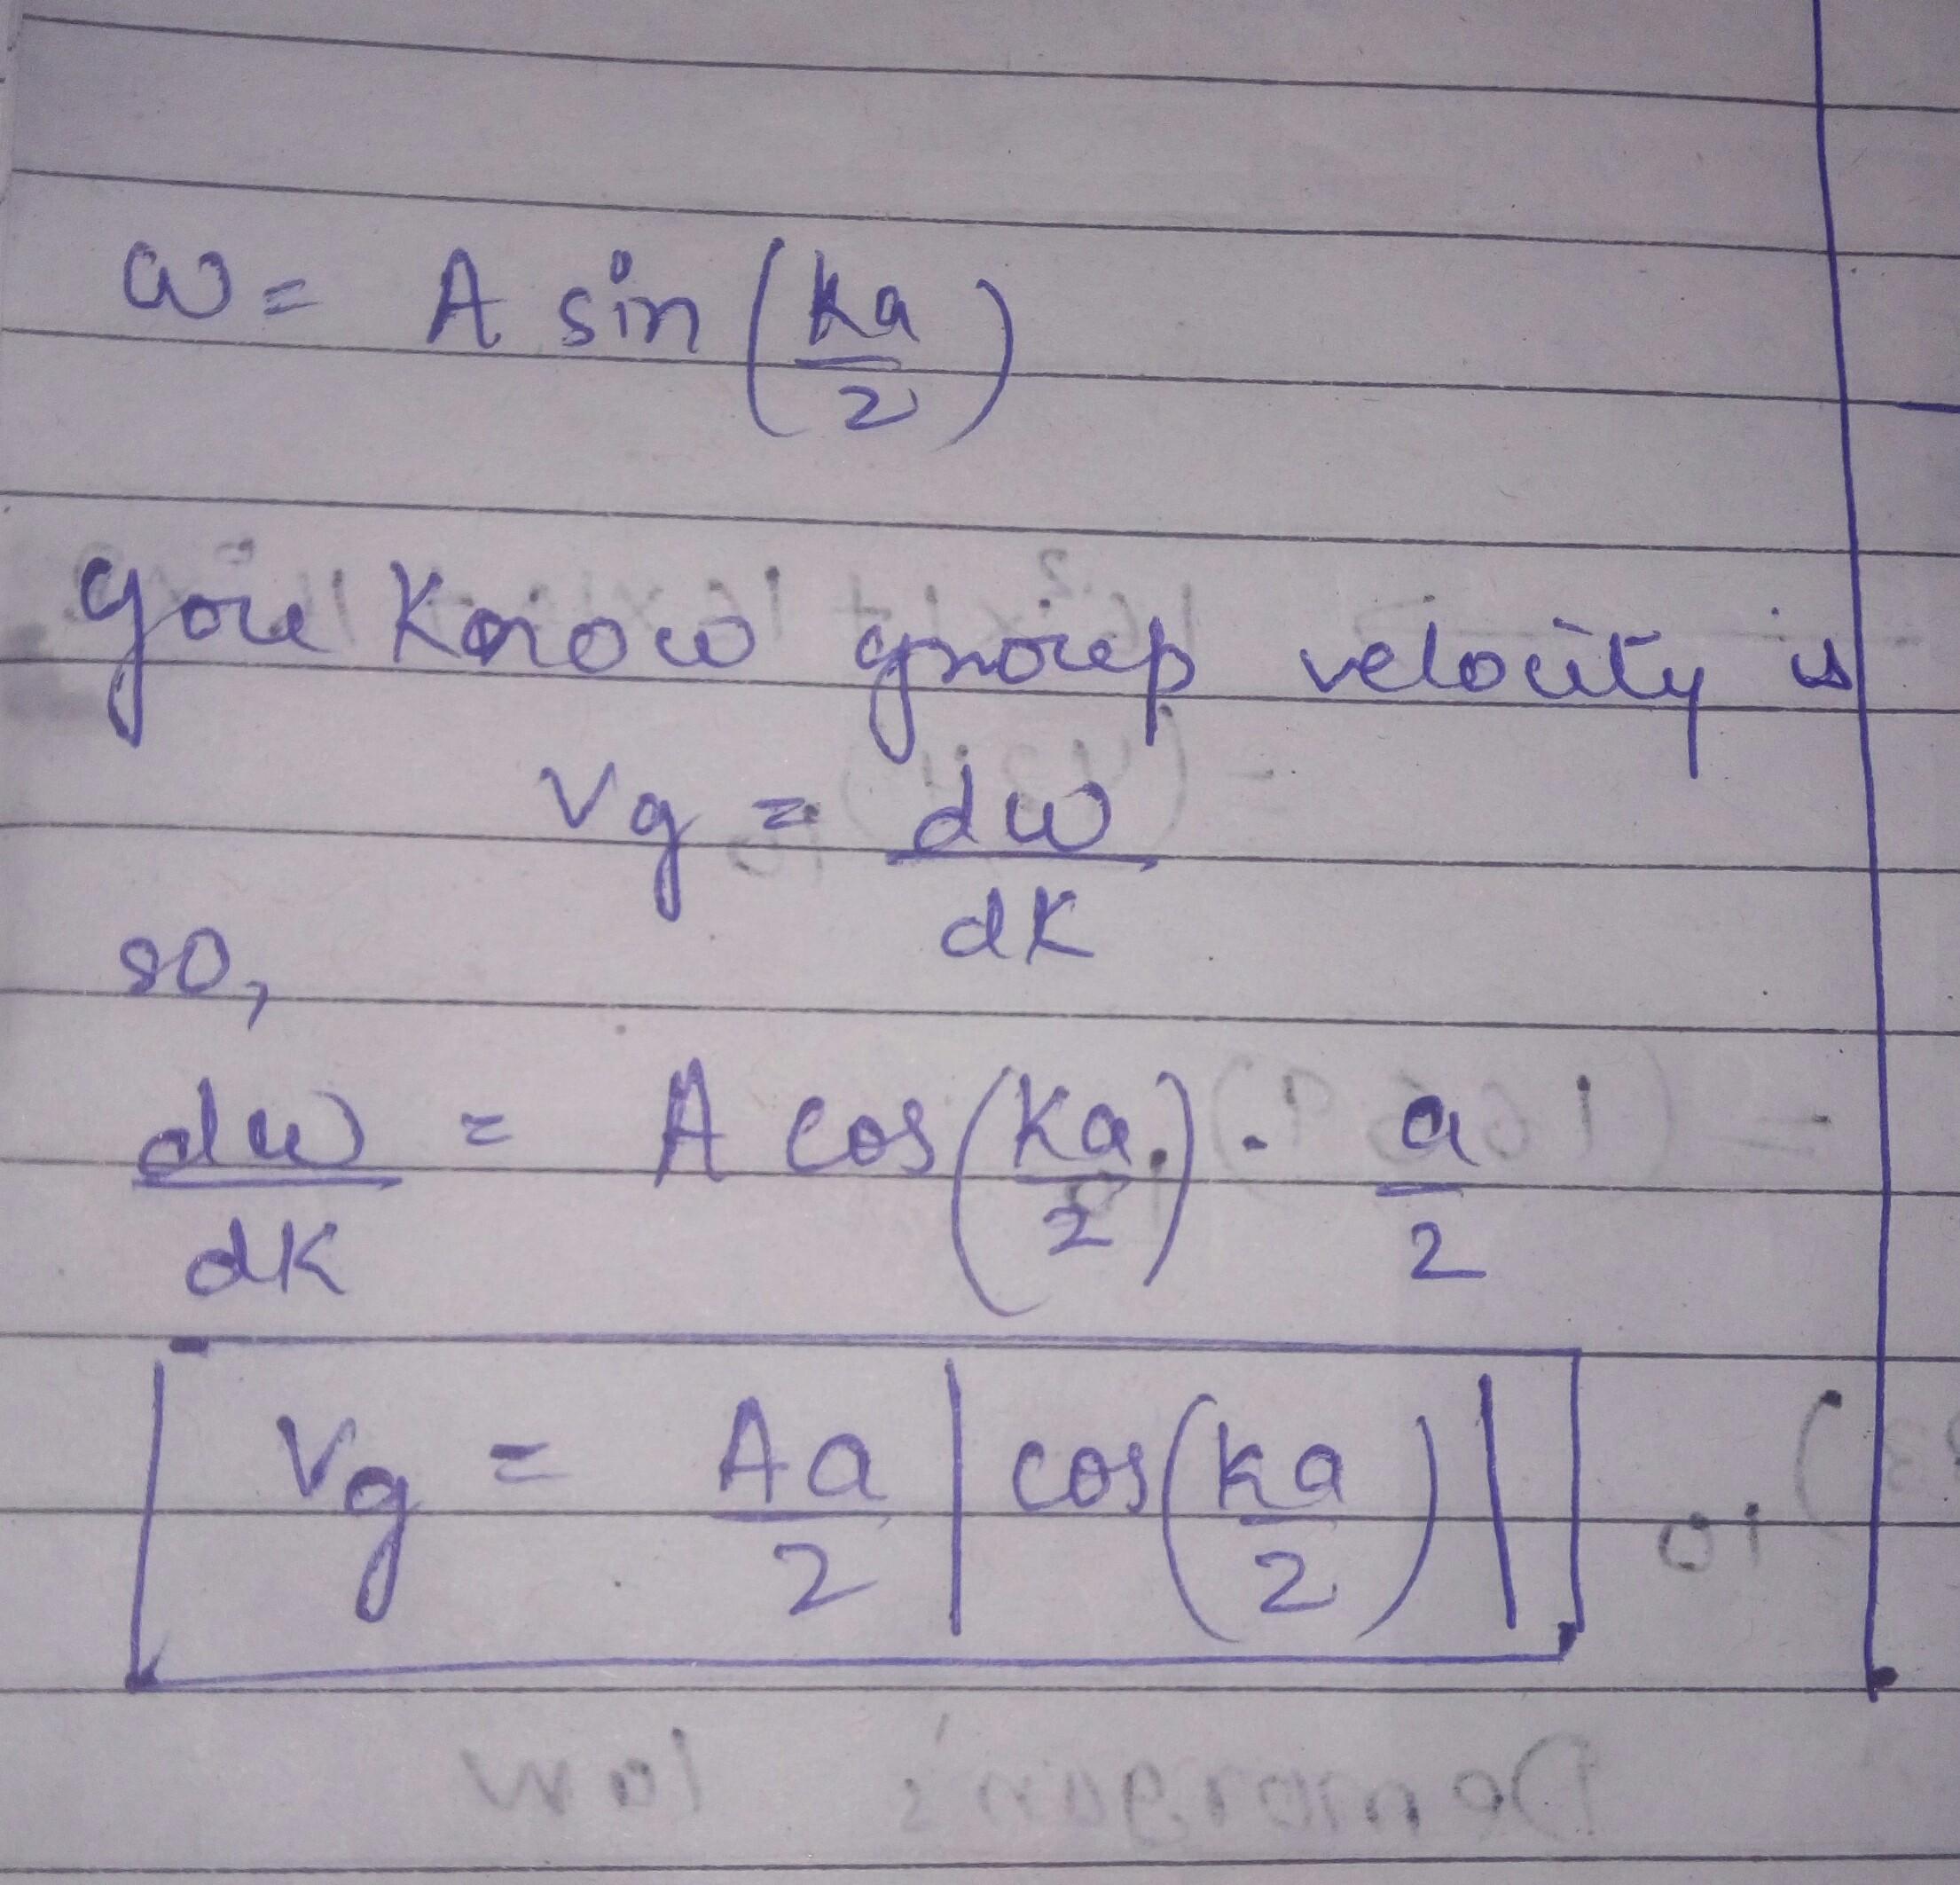 ω = A sin (ka/2)
you know group velocity is
vg = dω/dk
so,
dω/dk = A cos (ka/2) · a/2
vg = Aa/2 |cos(ka/2)|